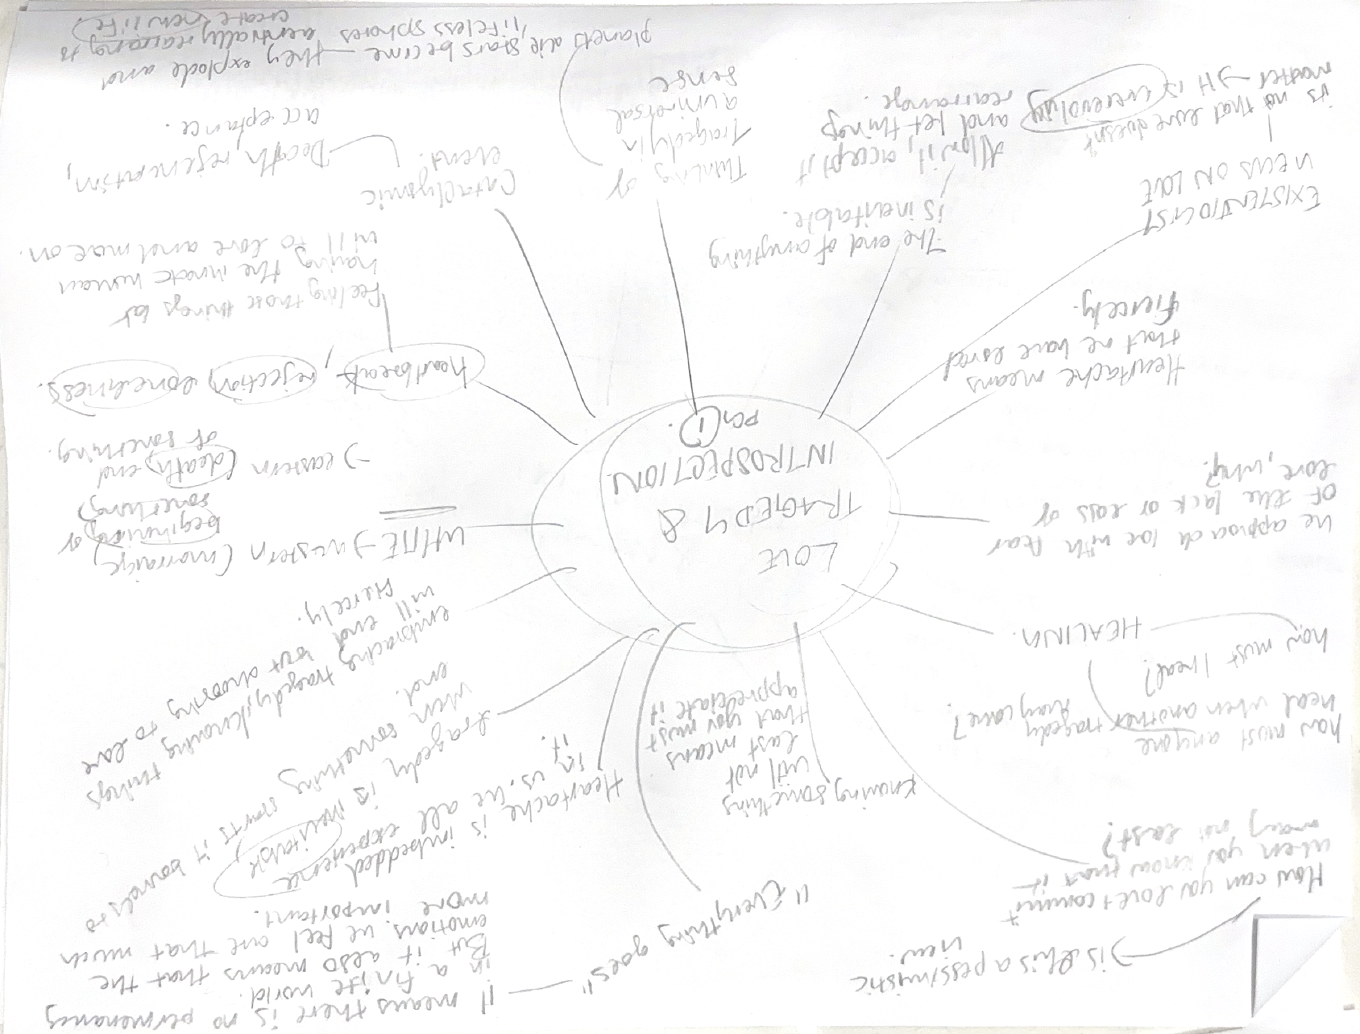 LOVE
TRAGEDY &
INTROSPECTION.
PCH 1.
"Everything goes"
It means there is no permenancy
in a finite world.
But it also means that the
emotions we feel are that much
more important.
Heartache is imbedded
in us. We all experience
it.
tragedy is inevitable,
when something starts it bounds to
end.
embracing tragedy, knowing things
will end but choosing to love
fiercely.
WHITE → western (marraige,
beginning of
something)
→ eastern (death, end
of something.
heartbreak, rejection, loneliness.
Feeling those things but
having the innate human
will to love and move on.
Cataclysmic
event.
Death, rejeneration,
acceptance.
Thinking of
Tragedy in
a universal
sense
planets die stars become
lifeless sphores
they explode and
create new life.
The end of anything
is inevitable.
Allow it, accept it
and let things
rearrange.
EXISTENTIALIST
VIEWS ON LOVE
is no that love doesn't
matter → It is everevolving
Heartache means
that we have loved
fiercely.
We approach love with fear
of the lack or loss of
love, why?
HEALING.
how must I heal?
how must anyone
heal when another tragedy
may come?
Knowing something
will not
last means
that you must
appreciate it
How can you love + commit
when you know that it
may not last?
→ is this a pessimistic
view.